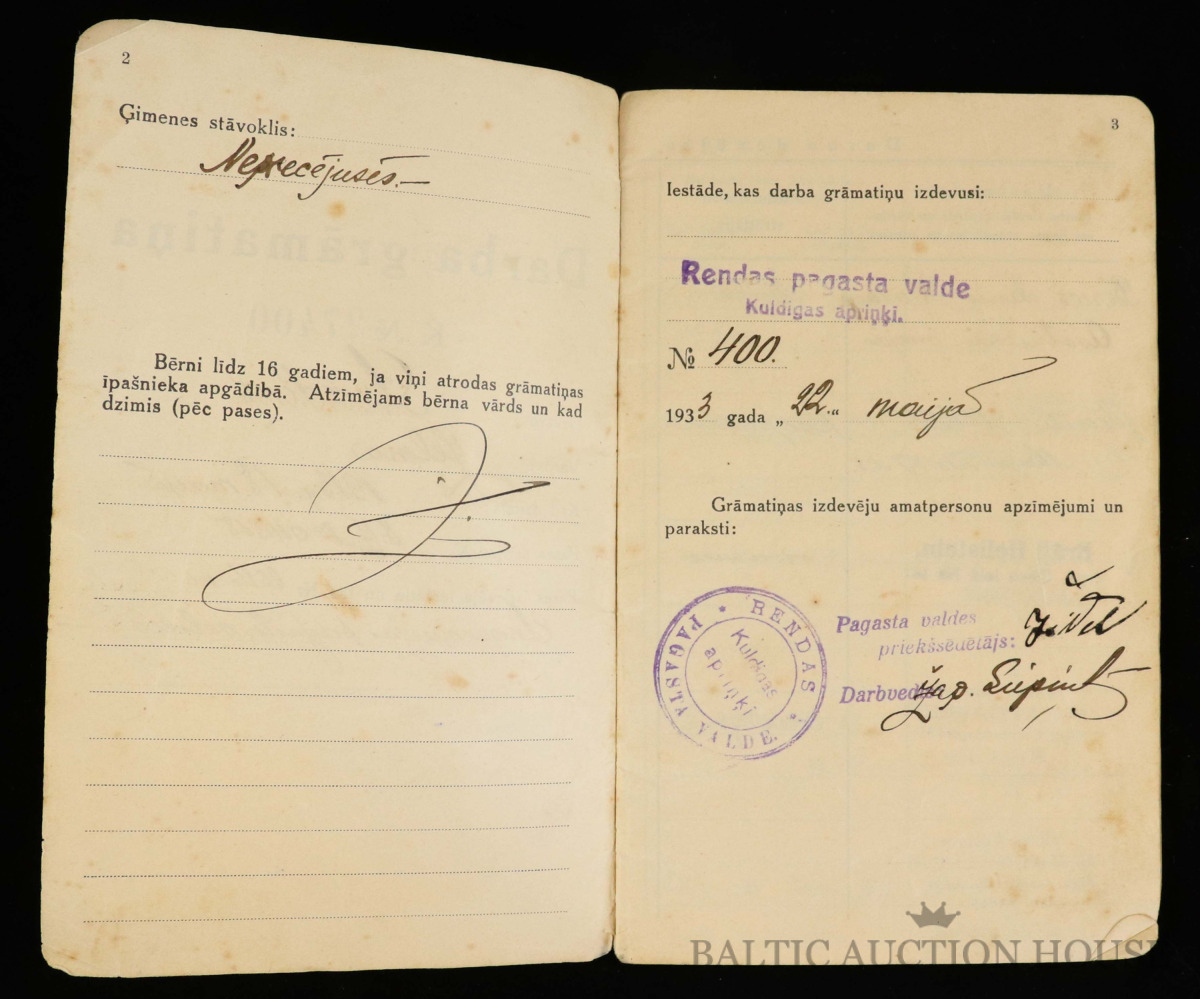 2
Ģimenes stāvoklis:
Neprecējusēs.—
Bērni līdz 16 gadiem, ja viņi atrodas grāmatiņas
īpašnieka apgādībā. Atzīmējams bērna vārds un kad
dzimis (pēc pases).
3
Iestāde, kas darba grāmatiņu izdevusi:
Rendas pagasta valde
Kuldīgas apriņķī.
№ 400.
1933 gada „22.“ maijā
Grāmatiņas izdevēju amatpersonu apzīmējumi un
paraksti:
RENDAS PAGASTA VALDE.
Kuldīgas
apriņķī
Pagasta valdes
priekšsēdētājs:
Darbvedis
BALTIC AUCTION HOUSE